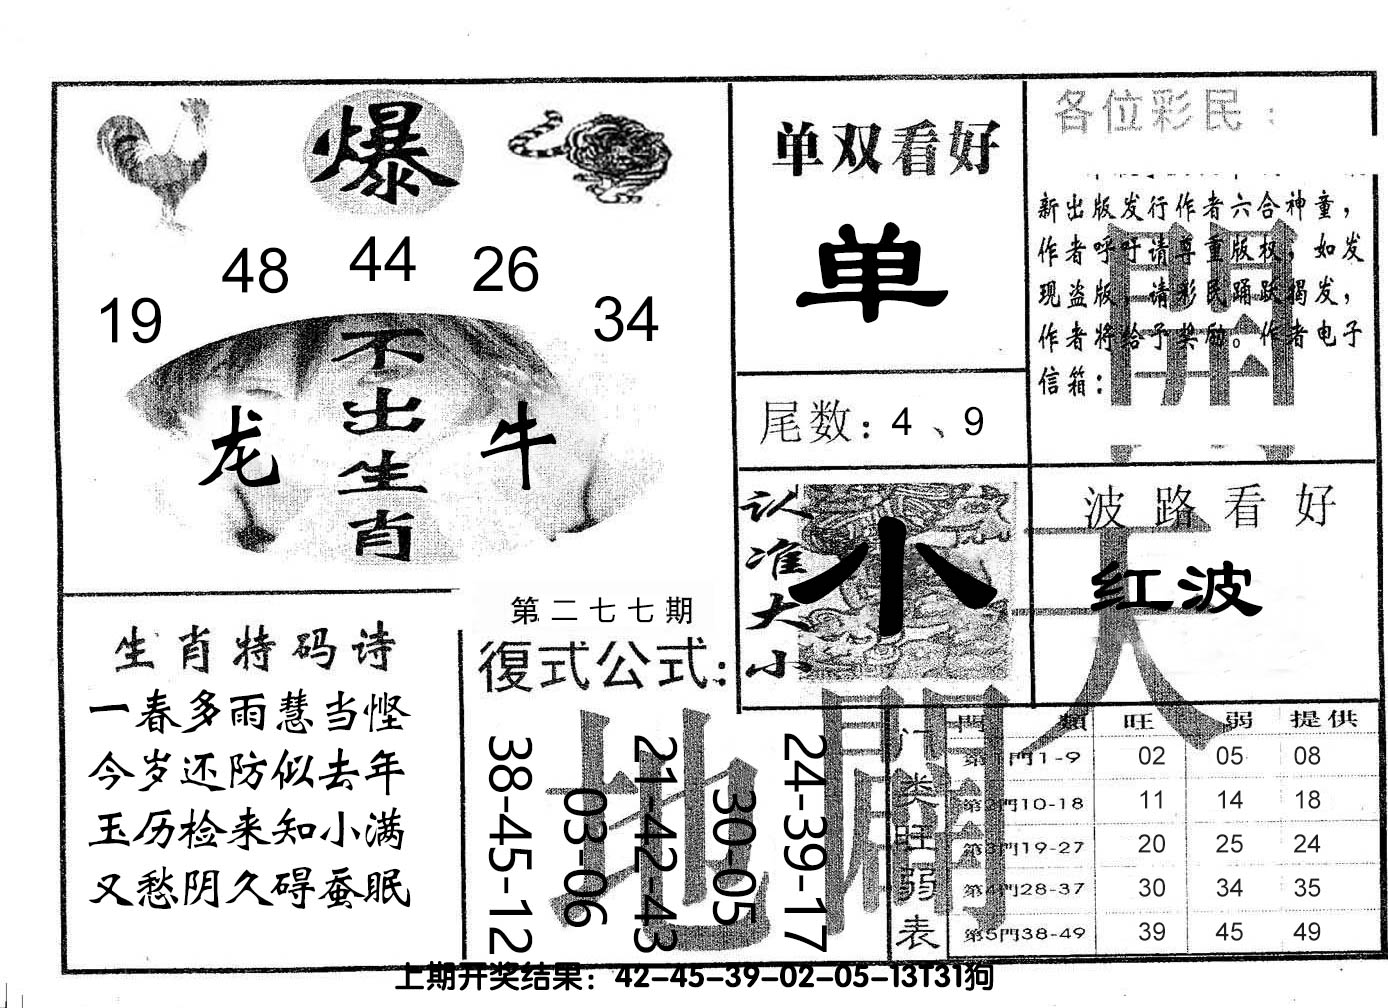 爆
48 44 26
19 34
不出生肖
龙 牛
生肖特码诗
一春多雨慧当悭
今岁还防似去年
玉历检来知小满
又愁阴久碍蚕眠
第二七七期
復式公式:
38-45-12
03-06
21-42-43
30-05
24-39-17
单双看好
单
尾数: 4 、9
认准大小
小
各位彩民:
新出版发行作者六合神童，
作者呼吁请尊重版权，如发
现盗版，请彩民踊跃揭发，
作者将给予奖励。作者电子
信箱:
開
波路看好
红波
天
地
門類 旺 弱 提供
门类旺弱表
第1門1-9 02 05 08
第2門10-18 11 14 18
第3門19-27 20 25 24
第4門28-37 30 34 35
第5門38-49 39 45 49
上期开奖结果：42-45-39-02-05-13T31狗